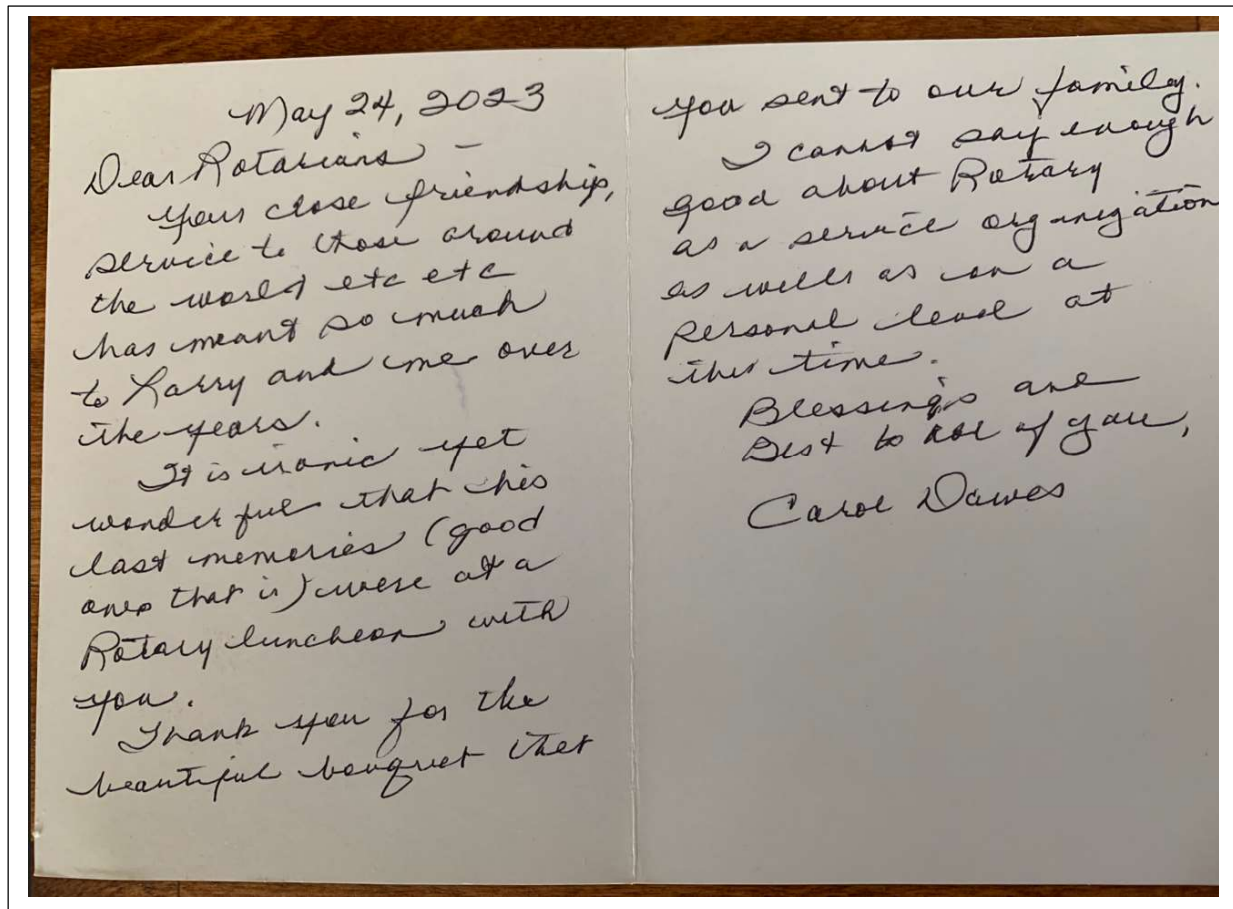 May 24, 2023
Dear Rotarians –
Your close friendship,
service to those around
the world etc etc
has meant so much
to Larry and me over
the years.
It is ironic yet
wonderful that his
last memories (good
ones that is) were at a
Rotary luncheon with
you.
Thank you for the
beautiful bouquet that
you sent to our family.
I cannot say enough
good about Rotary
as a service organization
as well as on a
personal level at
this time.
Blessings and
Best to all of you,
Carol Dawes